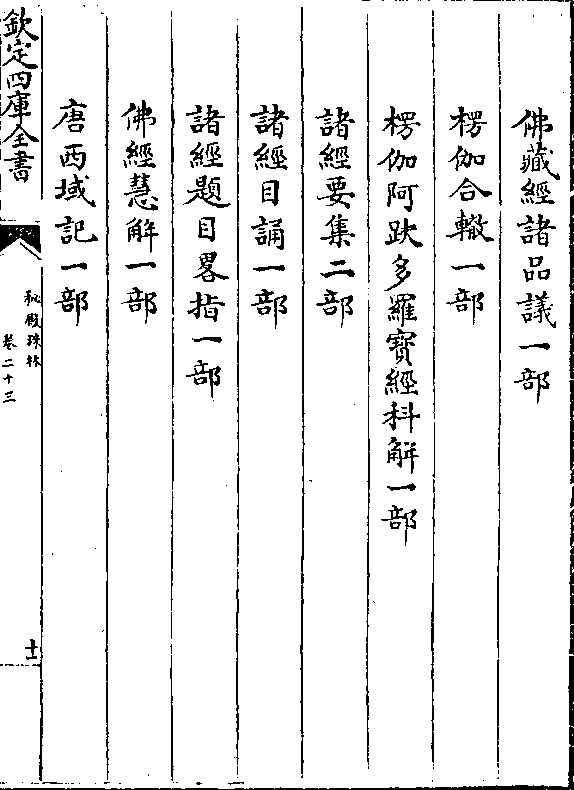 佛藏經諸品議一部
楞伽合轍一部
楞伽阿跋多羅寳經科解一部
諸經要集二部
諸經目誦一部
諸經題目畧指一部
佛經慧解一部
唐西域記一部
欽定四庫全書
秘殿珠林
卷二十三
十一